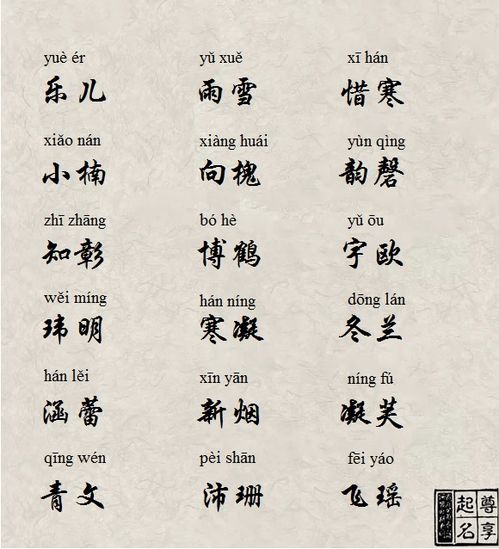 yuè ér yǔ xuě xī hán
乐儿 雨雪 惜寒
xiǎo nán xiàng huái yùn qìng
小楠 向槐 韵磬
zhī zhāng bó hè yǔ ōu
知彰 博鹤 宇欧
wěi míng hán níng dōng lán
玮明 寒凝 冬兰
hán lěi xīn yān níng fú
涵蕾 新烟 凝芙
qīng wén pèi shān fēi yáo
青文 沛珊 飞瑶
尊享
起名